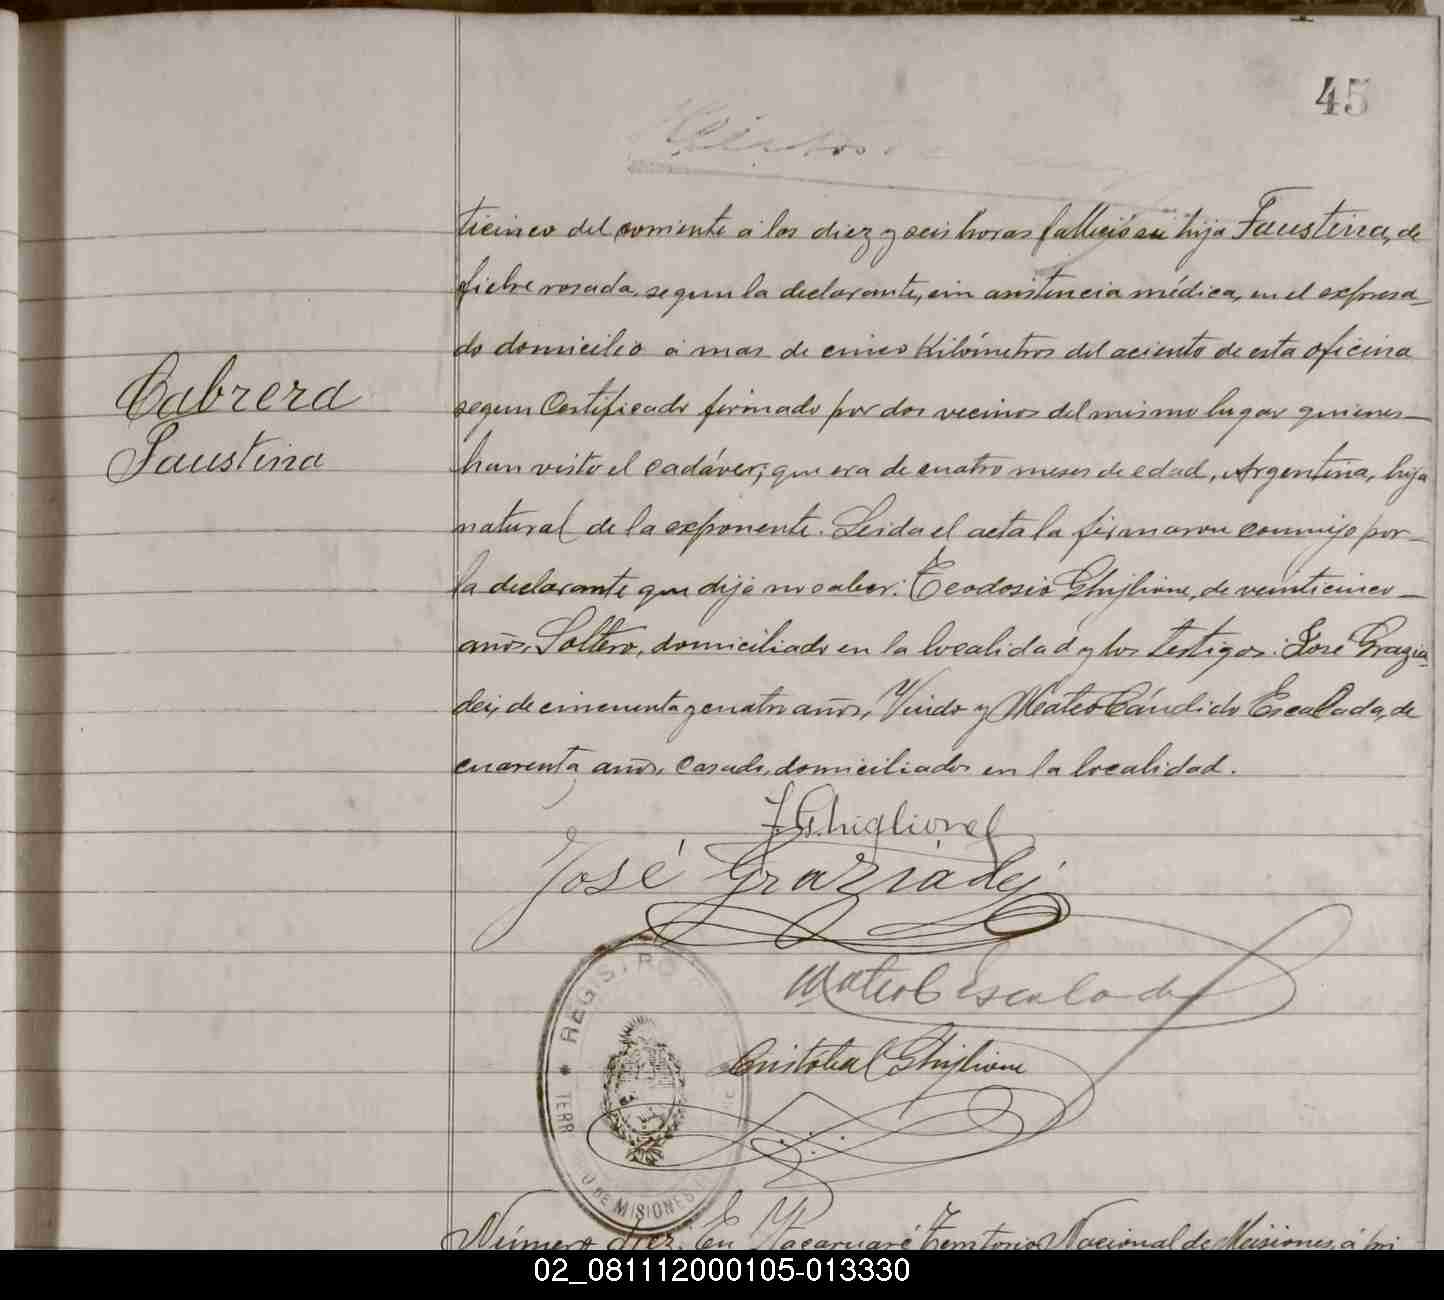 45
ticinco del corriente á las diez y seis horas falleció su hija Faustina, de
fiebre rosada, segun la declarante, sin asistencia médica, en el expresa-
do domicilio á mas de cinco Kilómetros del aciento de esta oficina
segun Certificado firmado por dos vecinos del mismo lugar quienes
han visto el cadáver; que era de cuatro meses de edad, Argentina, hija
natural de la exponente. Leida el acta la firmaron conmigo por
la declarante que dijo no saber: Teodosio Ghiglione, de veinticinco
años, Soltero, domiciliado en la localidad y los testigos: José Grazia-
dei, de cincuenta y cuatro años, Viudo y Mateo Cándido Escalada, de
cuarenta años, Casado, domiciliados en la localidad.
Cabrera
Faustina
Ghiglione
José Graziadei
Mateo C Escalada
Cristobal Ghiglione
REGISTRO
TERR
O DE MISIONES
Número diez. En Itacaruaré Territorio Nacional de Misiones, á pri
02_081112000105-013330